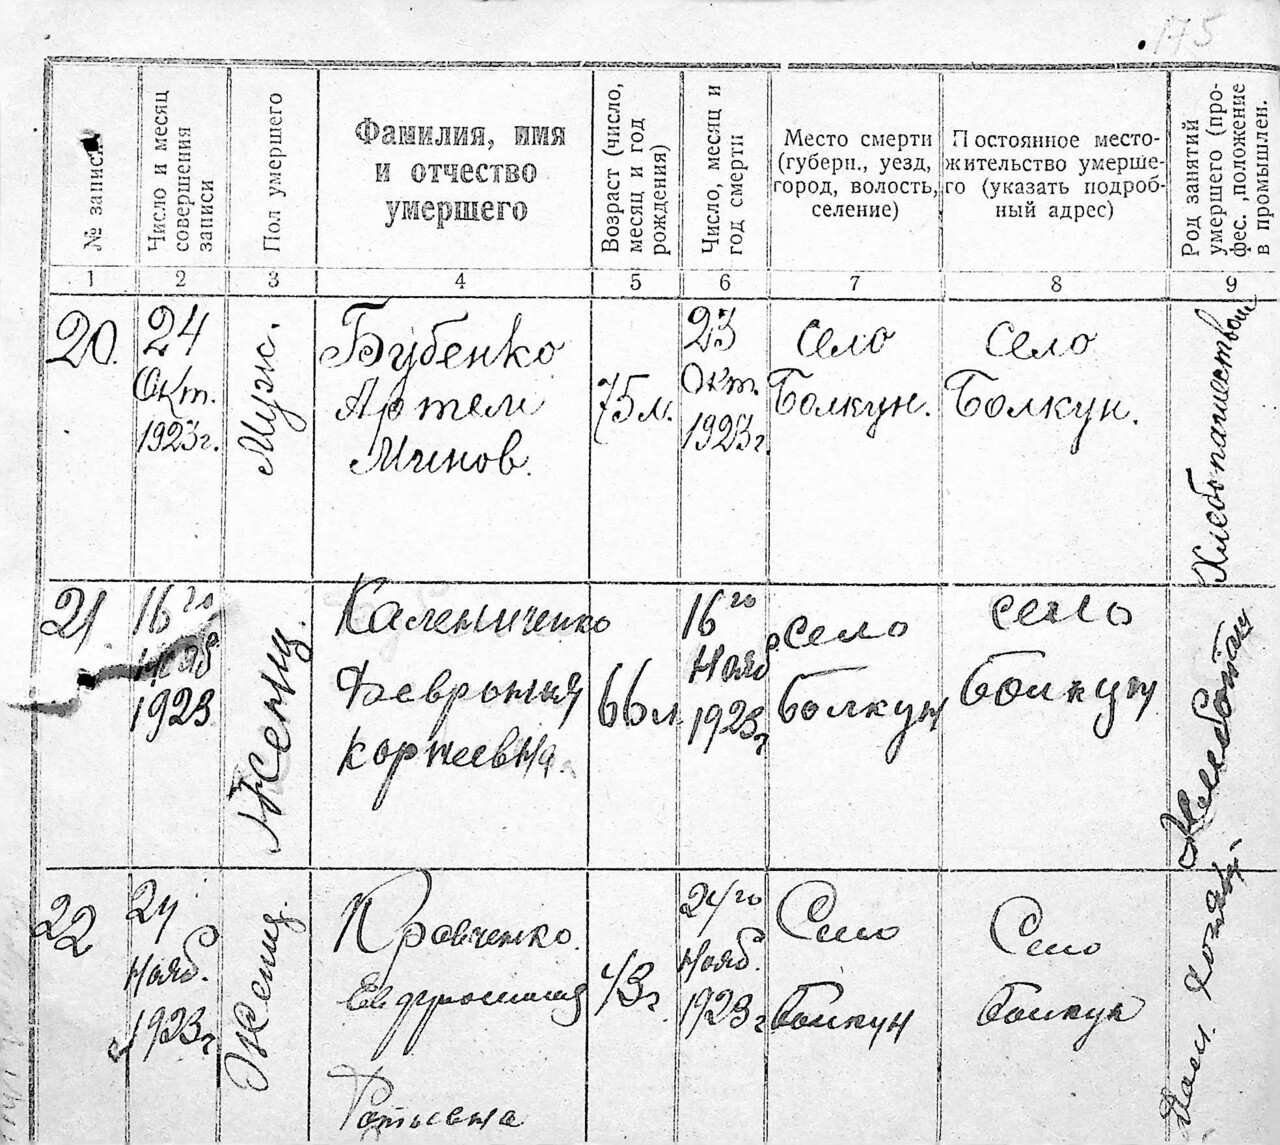 175
№ записи
Число и месяц совершения записи
Пол умершего
Фамилия, имя и отчество умершего
Возраст (число, месяц и год рождения)
Число, месяц и год смерти
Место смерти (губерн., уезд, город, волость, селение)
Постоянное место-жительство умерше-го (указать подроб-ный адрес)
Род занятий умершего (про-фес. ,положение в промышлен.
1 2 3 4 5 6 7 8 9
20.
24
Окт.
1923г.
Муж.
Бубенко
Артем
Минов.
75 л.
23
Окт.
1923г
село
Болкун.
село
Болкун.
Хлебопашеством
21
16го
Нояб
1923
Женщ.
Калениченко
Феврония
Корнеевна.
66 л
16го
Нояб
1923г
село
Болкун
село
Болкун
22
24
Нояб.
1923г
Женщ.
Кравченко.
Евдросиния
Фотыевна
43г
24го
Нояб.
1923г
Село
Болкун
Село
Болкун